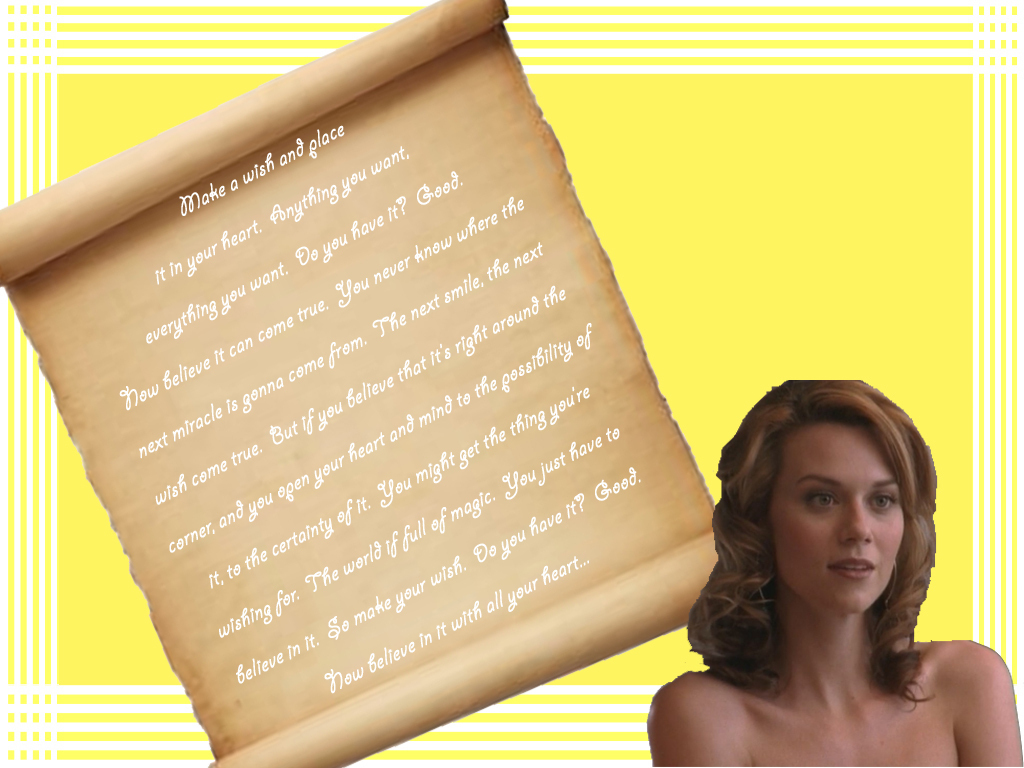 Make a wish and place
it in your heart. Anything you want,
everything you want. Do you have it? Good.
Now believe it can come true. You never know where the
next miracle is gonna come from. The next smile, the next
wish come true. But if you believe that it's right around the
corner, and you open your heart and mind to the possibility of
it, to the certainty of it. You might get the thing you're
wishing for. The world if full of magic. You just have to
believe in it. So make your wish. Do you have it? Good.
Now believe in it with all your heart...